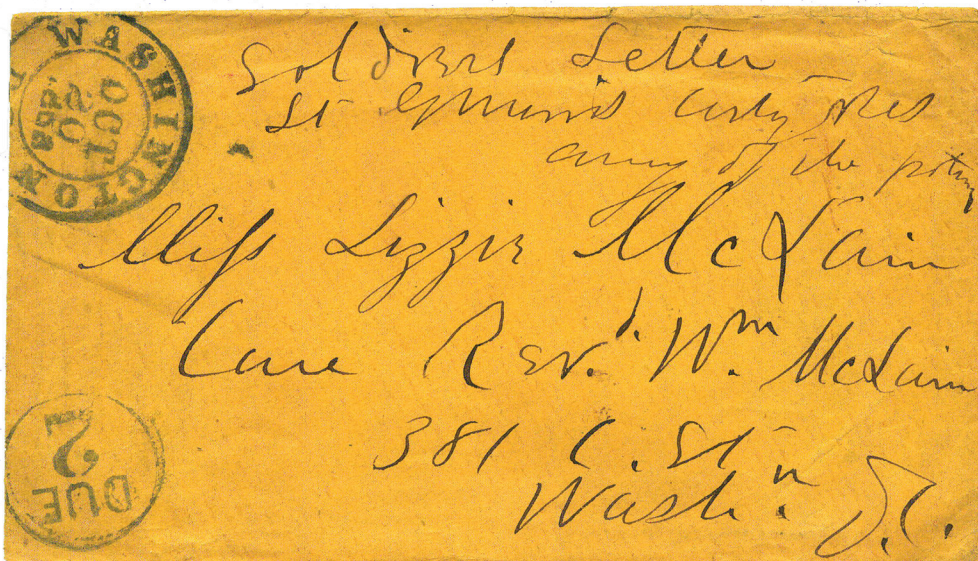 WASHINGTON D
OCT
20
Soldiers Letter
Lt
army of the potomac
Miss Lizzie McLain
Care Rev.d Wm. McLain
381 C. St
Wash.n D.C.
DUE
2